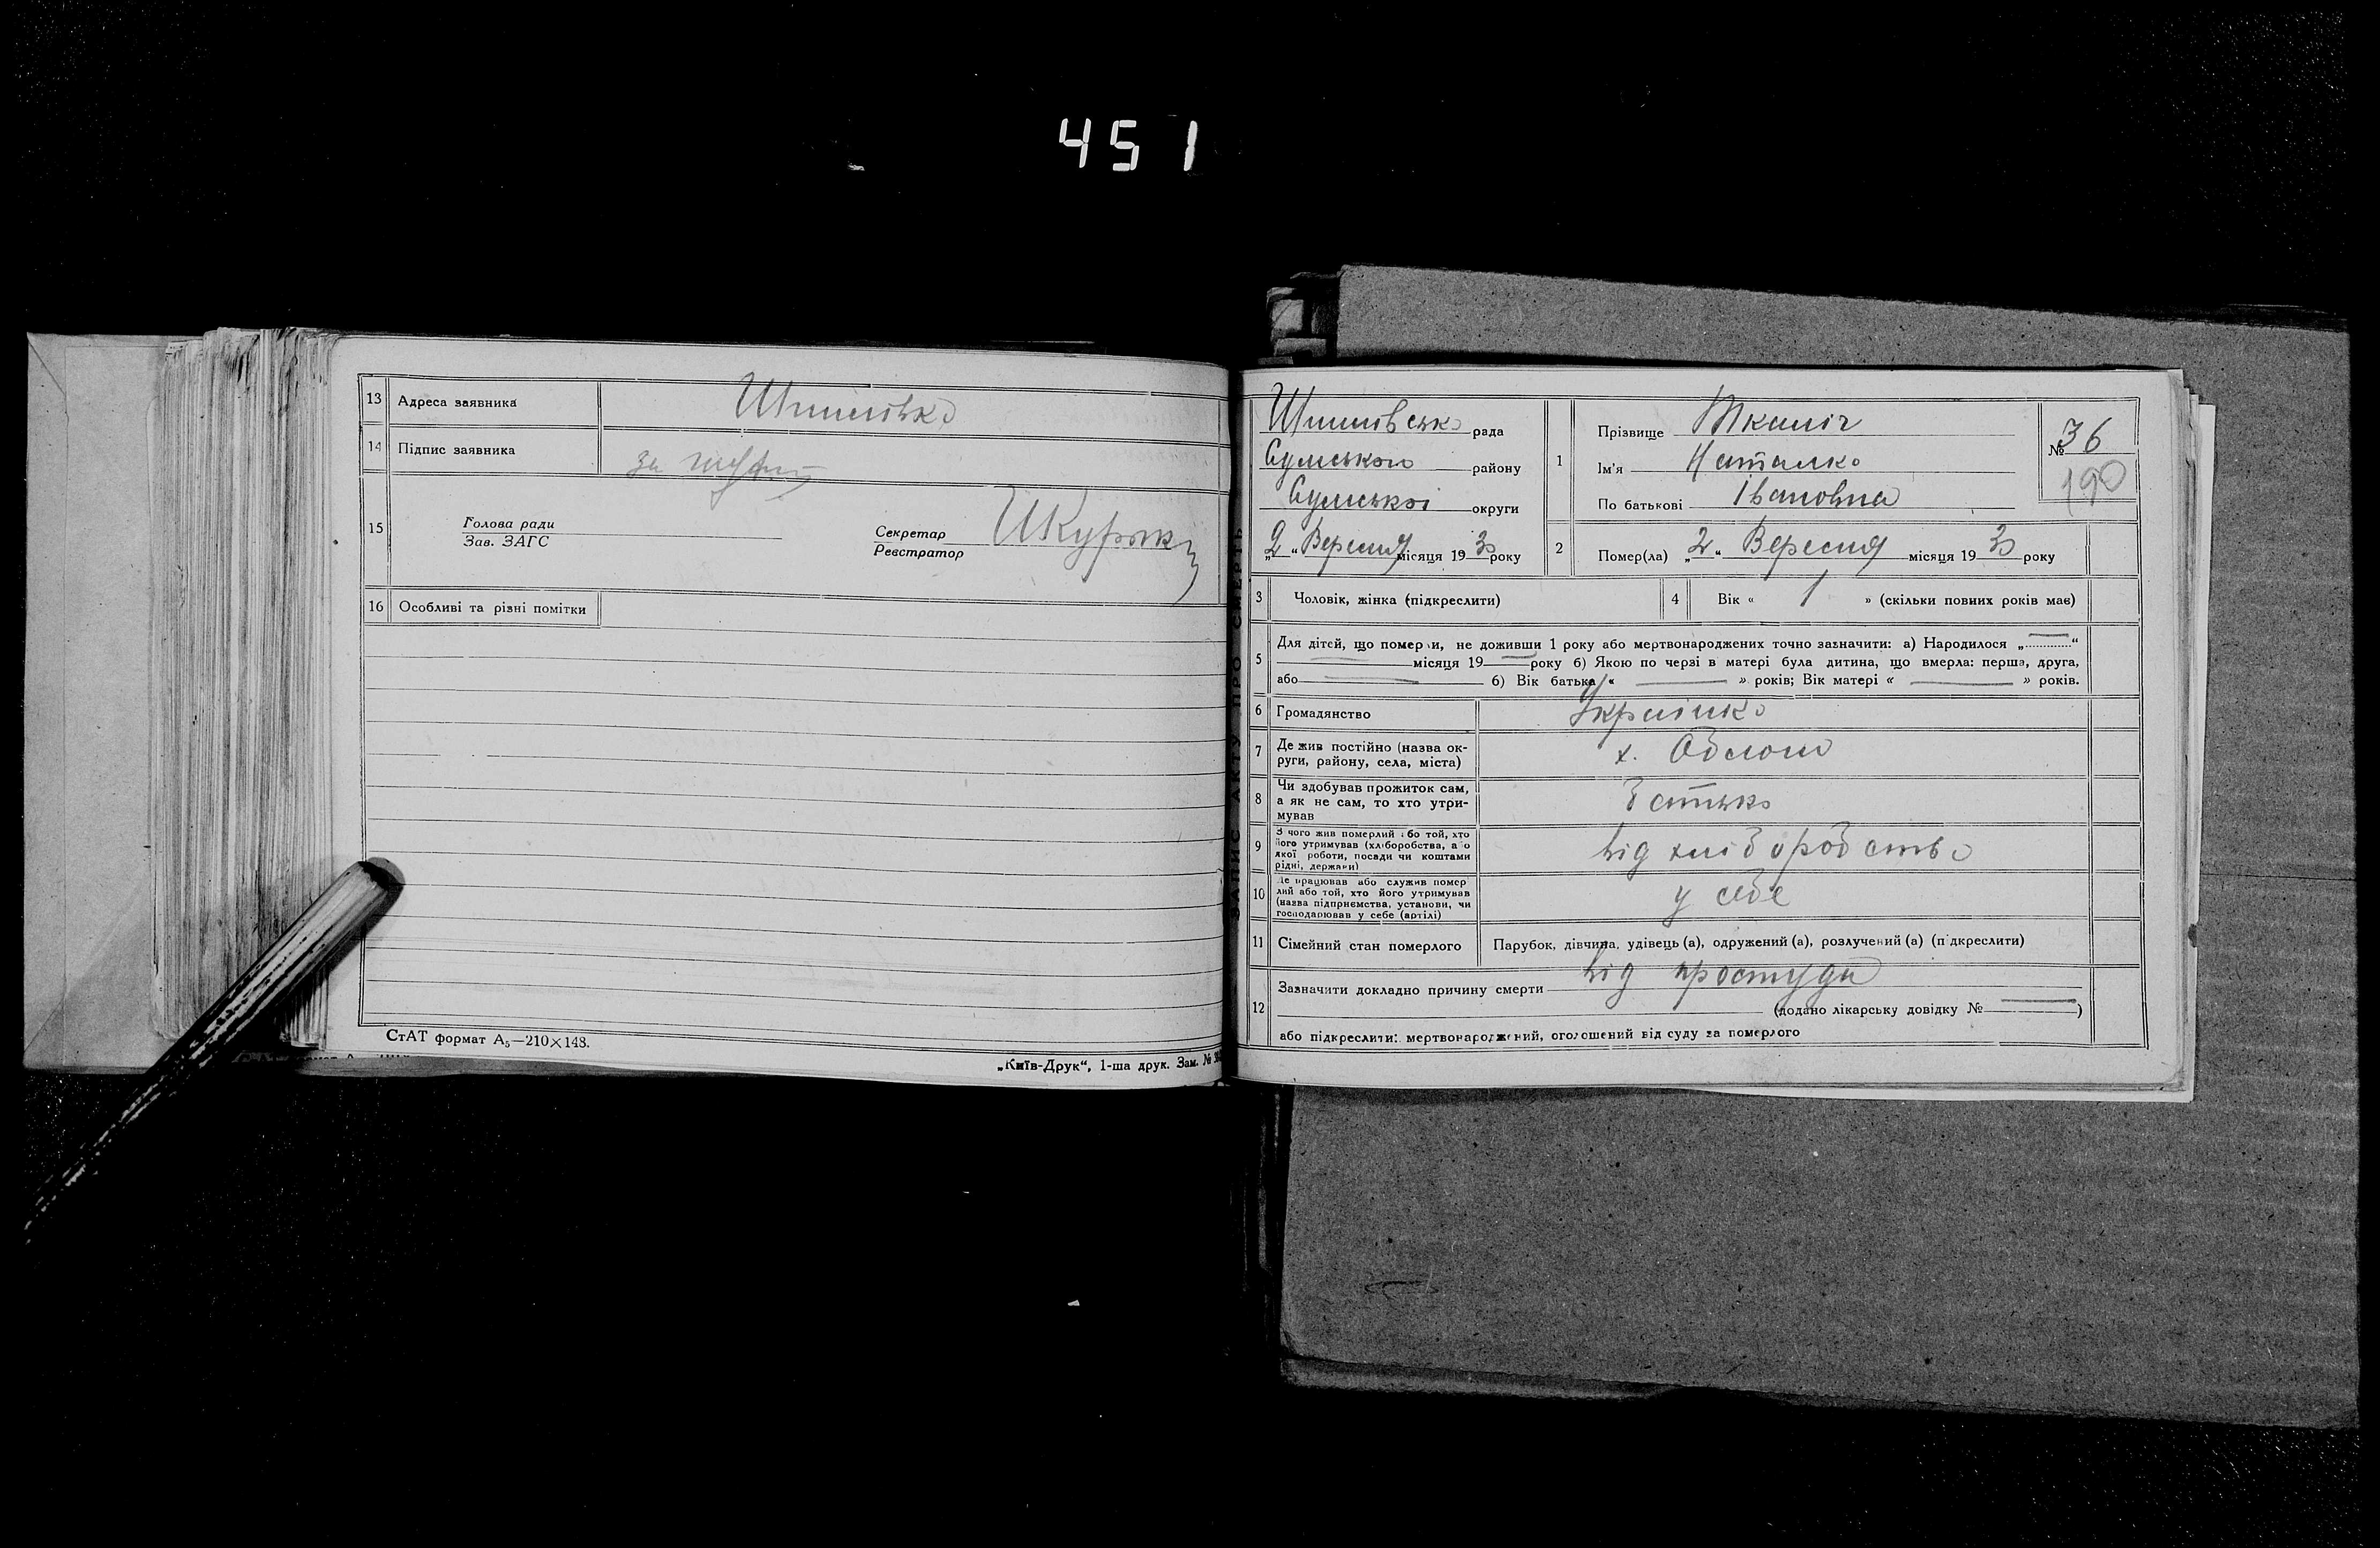 451
13 Адреса заявника Шпилівка
14 Підпис заявника
15 Голова ради
Зав. ЗАГС
Секретар
Реєстратор
16 Особливі та різні помітки
СтАТ формат А₅—210×148.
„Київ-Друк“, 1-ша друк. Зам. №
ЗАПИС АКТУ ПРО СМЕРТЬ
Шпилівська рада
Сумського району
Сумської округи
„2“ Вересня місяця 1930 року
1 Прізвище
Ім'я Наталка
По батькові Івановна
№ 36
190
2 Помер(ла) „2“ Вересня місяця 1930 року
3 Чоловік, жінка (підкреслити)
4 Вік « 1 » (скільки повних років має)
5 Для дітей, що померли, не доживши 1 року або мертвонароджених точно зазначити: а) Народилося „ “
місяця 19 року б) Якою по черзі в матері була дитина, що вмерла: перша, друга,
або б) Вік батька « » років; Вік матері « » років.
6 Громадянство Україніка
7 Де жив постійно (назва ок-
руги, району, села, міста) х.
8 Чи здобував прожиток сам,
а як не сам, то хто утри-
мував Батько
9 З чого жив померлий або той, хто
його утримував (хліборобства, або
якої роботи, посади чи коштами
рідні, держави) від хліборобства
10 Де працював або служив помер
лий або той, хто його утримував
(назва підприємства, установи, чи
господарював у себе (артілі) у себе
11 Сімейний стан померлого Парубок, дівчина, удівець (а), одружений (а), розлучений (а) (підкреслити)
12 Зазначити докладно причину смерти від простуди
(додано лікарську довідку № )
або підкреслити: мертвонароджений, оголошений від суду за померлого